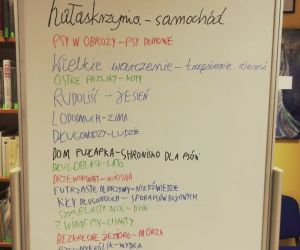 hałaskrzynia - samochód
PSY W OBROŻY - PSY DOMOWE
Wielkie warczenie - trzęsienie ziemi
OSTRE PAZURY - KOTY
RUDOLIŚĆ - JESIEŃ
LODOMUCH - ZIMA
DŁUGONODZY - LUDZIE
DOM PUŁAPKA - SHRONISKO DLA PSÓW
DŁUGOBLASK - LATO
DRZEWOKWIAT - WIOSNA
FUTRZASTE OLBRZYMY - NIEDŹWIEDZIE
KŁY DŁUGONOGICH -
SZABLASTY NOS - DZIK
ZWINNE PSY - CHARTY
BEZKRESNE JEZIORO - MORZE
- WYDRA